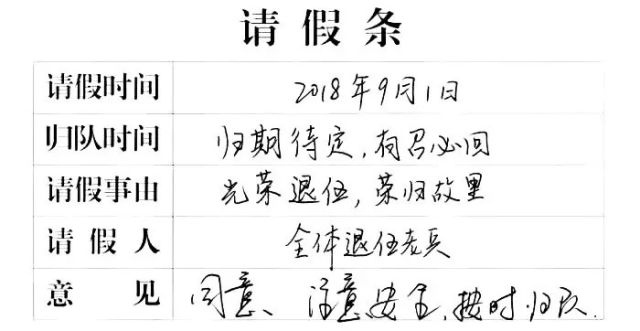 请假条
请假时间 2018年9月1日
归队时间 归期待定,有召必回
请假事由 光荣退伍,荣归故里
请假人 全体退伍老兵
意见 同意、注意安全,按时归队.